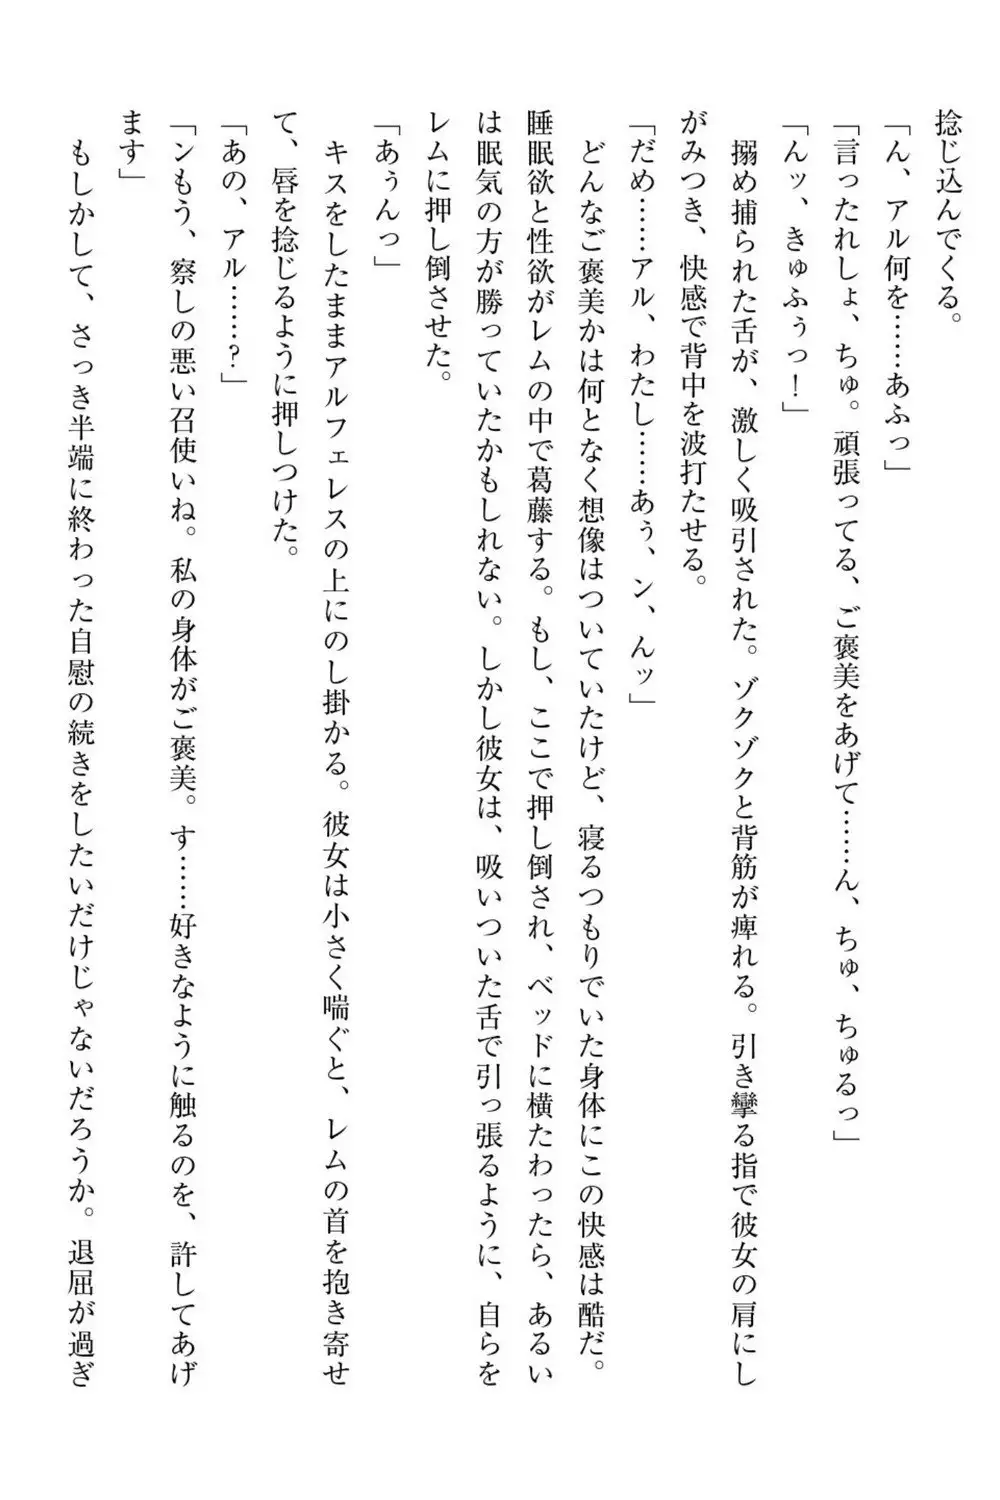 捻じ込んでくる。
「ん、アル何を……あふっ」
「言ったれしょ、ちゅ。頑張ってる、ご褒美をあげて……ん、ちゅ、ちゅるっ」
「んッ、きゅふぅっ！」
搦め捕られた舌が、激しく吸引された。ゾクゾクと背筋が痺れる。引き攣る指で彼女の肩にし
がみつき、快感で背中を波打たせる。
「だめ……アル、わたし……あぅ、ン、んッ」
どんなご褒美かは何となく想像はついていたけど、寝るつもりでいた身体にこの快感は酷だ。
睡眠欲と性欲がレムの中で葛藤する。もし、ここで押し倒され、ベッドに横たわったら、あるい
は眠気の方が勝っていたかもしれない。しかし彼女は、吸いついた舌で引っ張るように、自らを
レムに押し倒させた。
「あぅんっ」
キスをしたままアルフェレスの上にのし掛かる。彼女は小さく喘ぐと、レムの首を抱き寄せ
て、唇を捻じるように押しつけた。
「あの、アル……？」
「ンもう、察しの悪い召使いね。私の身体がご褒美。す……好きなように触るのを、許してあげ
ます」
もしかして、さっき半端に終わった自慰の続きをしたいだけじゃないだろうか。退屈が過ぎ